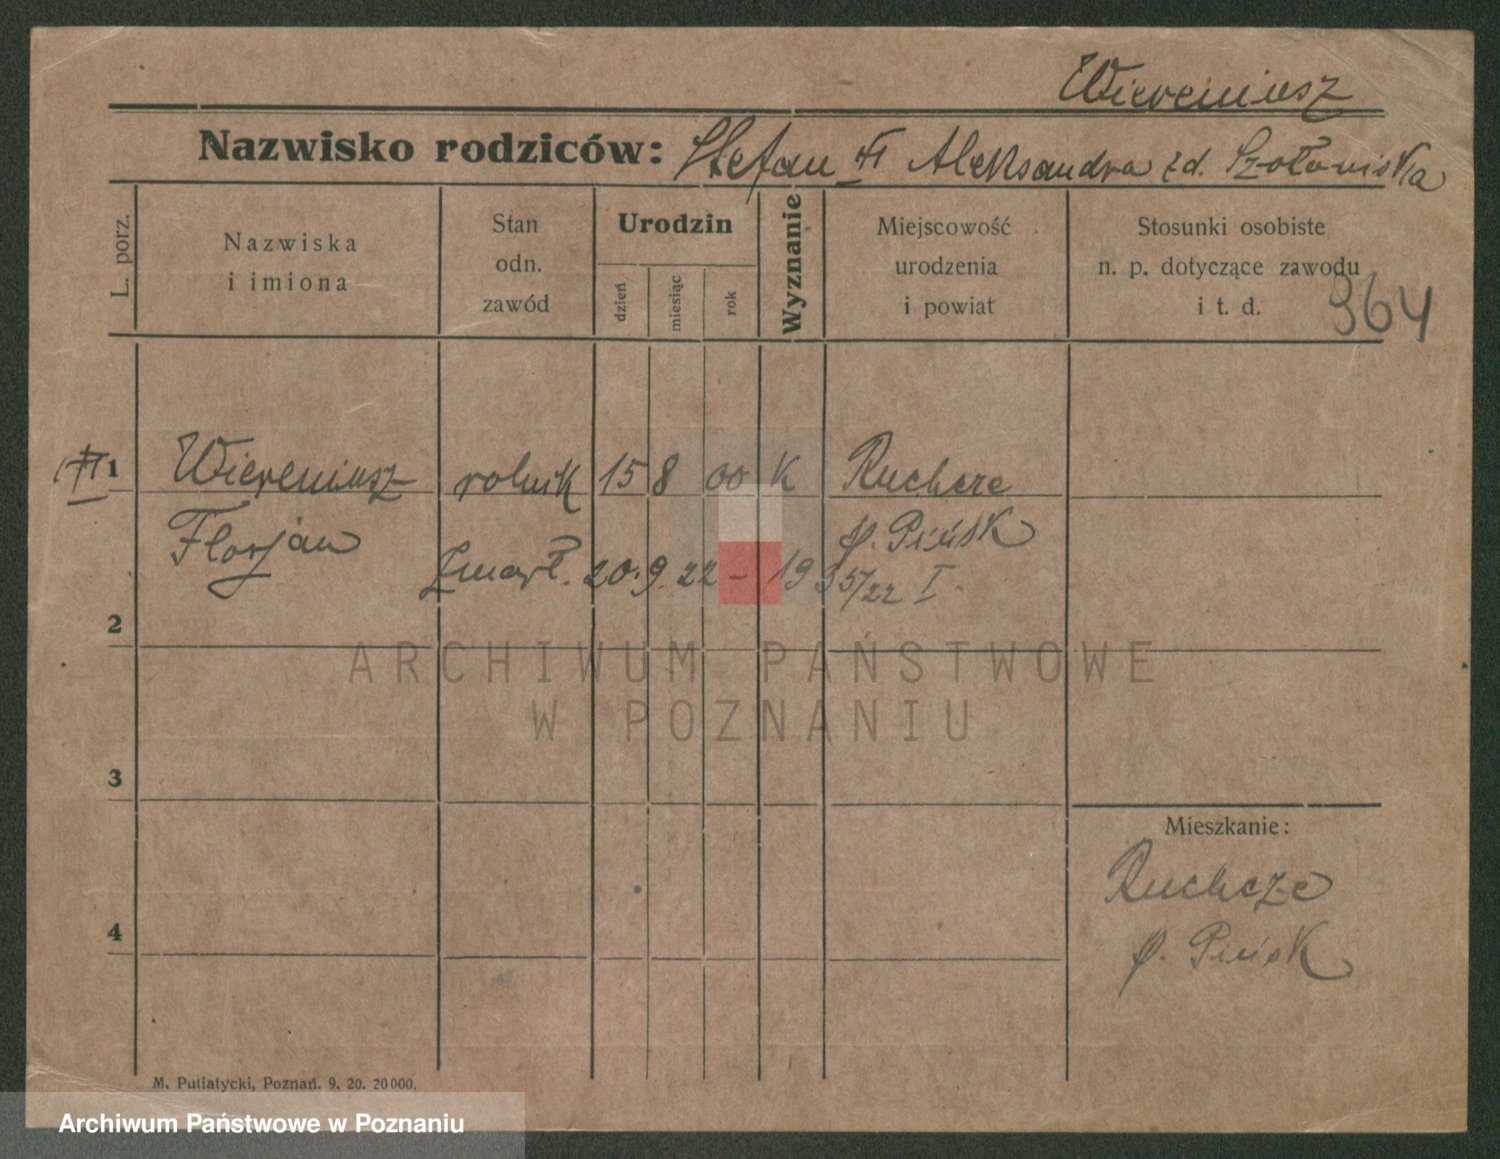 Wiereniusz
Nazwisko rodziców: Stefan Aleksandra zd. Szołomiska
L. porz.
Nazwiska
i imiona
Stan
odn.
zawód
Urodzin
dzień
miesiąc
rok
Wyznanie
Miejscowość
urodzenia
i powiat
Stosunki osobiste
n. p. dotyczące zawodu
i t. d.
964
1 Wiereniusz rolnik 15 8 00 K Ruchcze
Florjan p. Pińsk
Zmarł. 20.9.22 – 193 5/22 I.
2
3
4
Mieszkanie:
Ruchcze
p. Pińsk
M. Putiatycki, Poznań. 9. 20. 20000.
ARCHIWUM PAŃSTWOWE
W POZNANIU
Archiwum Państwowe w Poznaniu